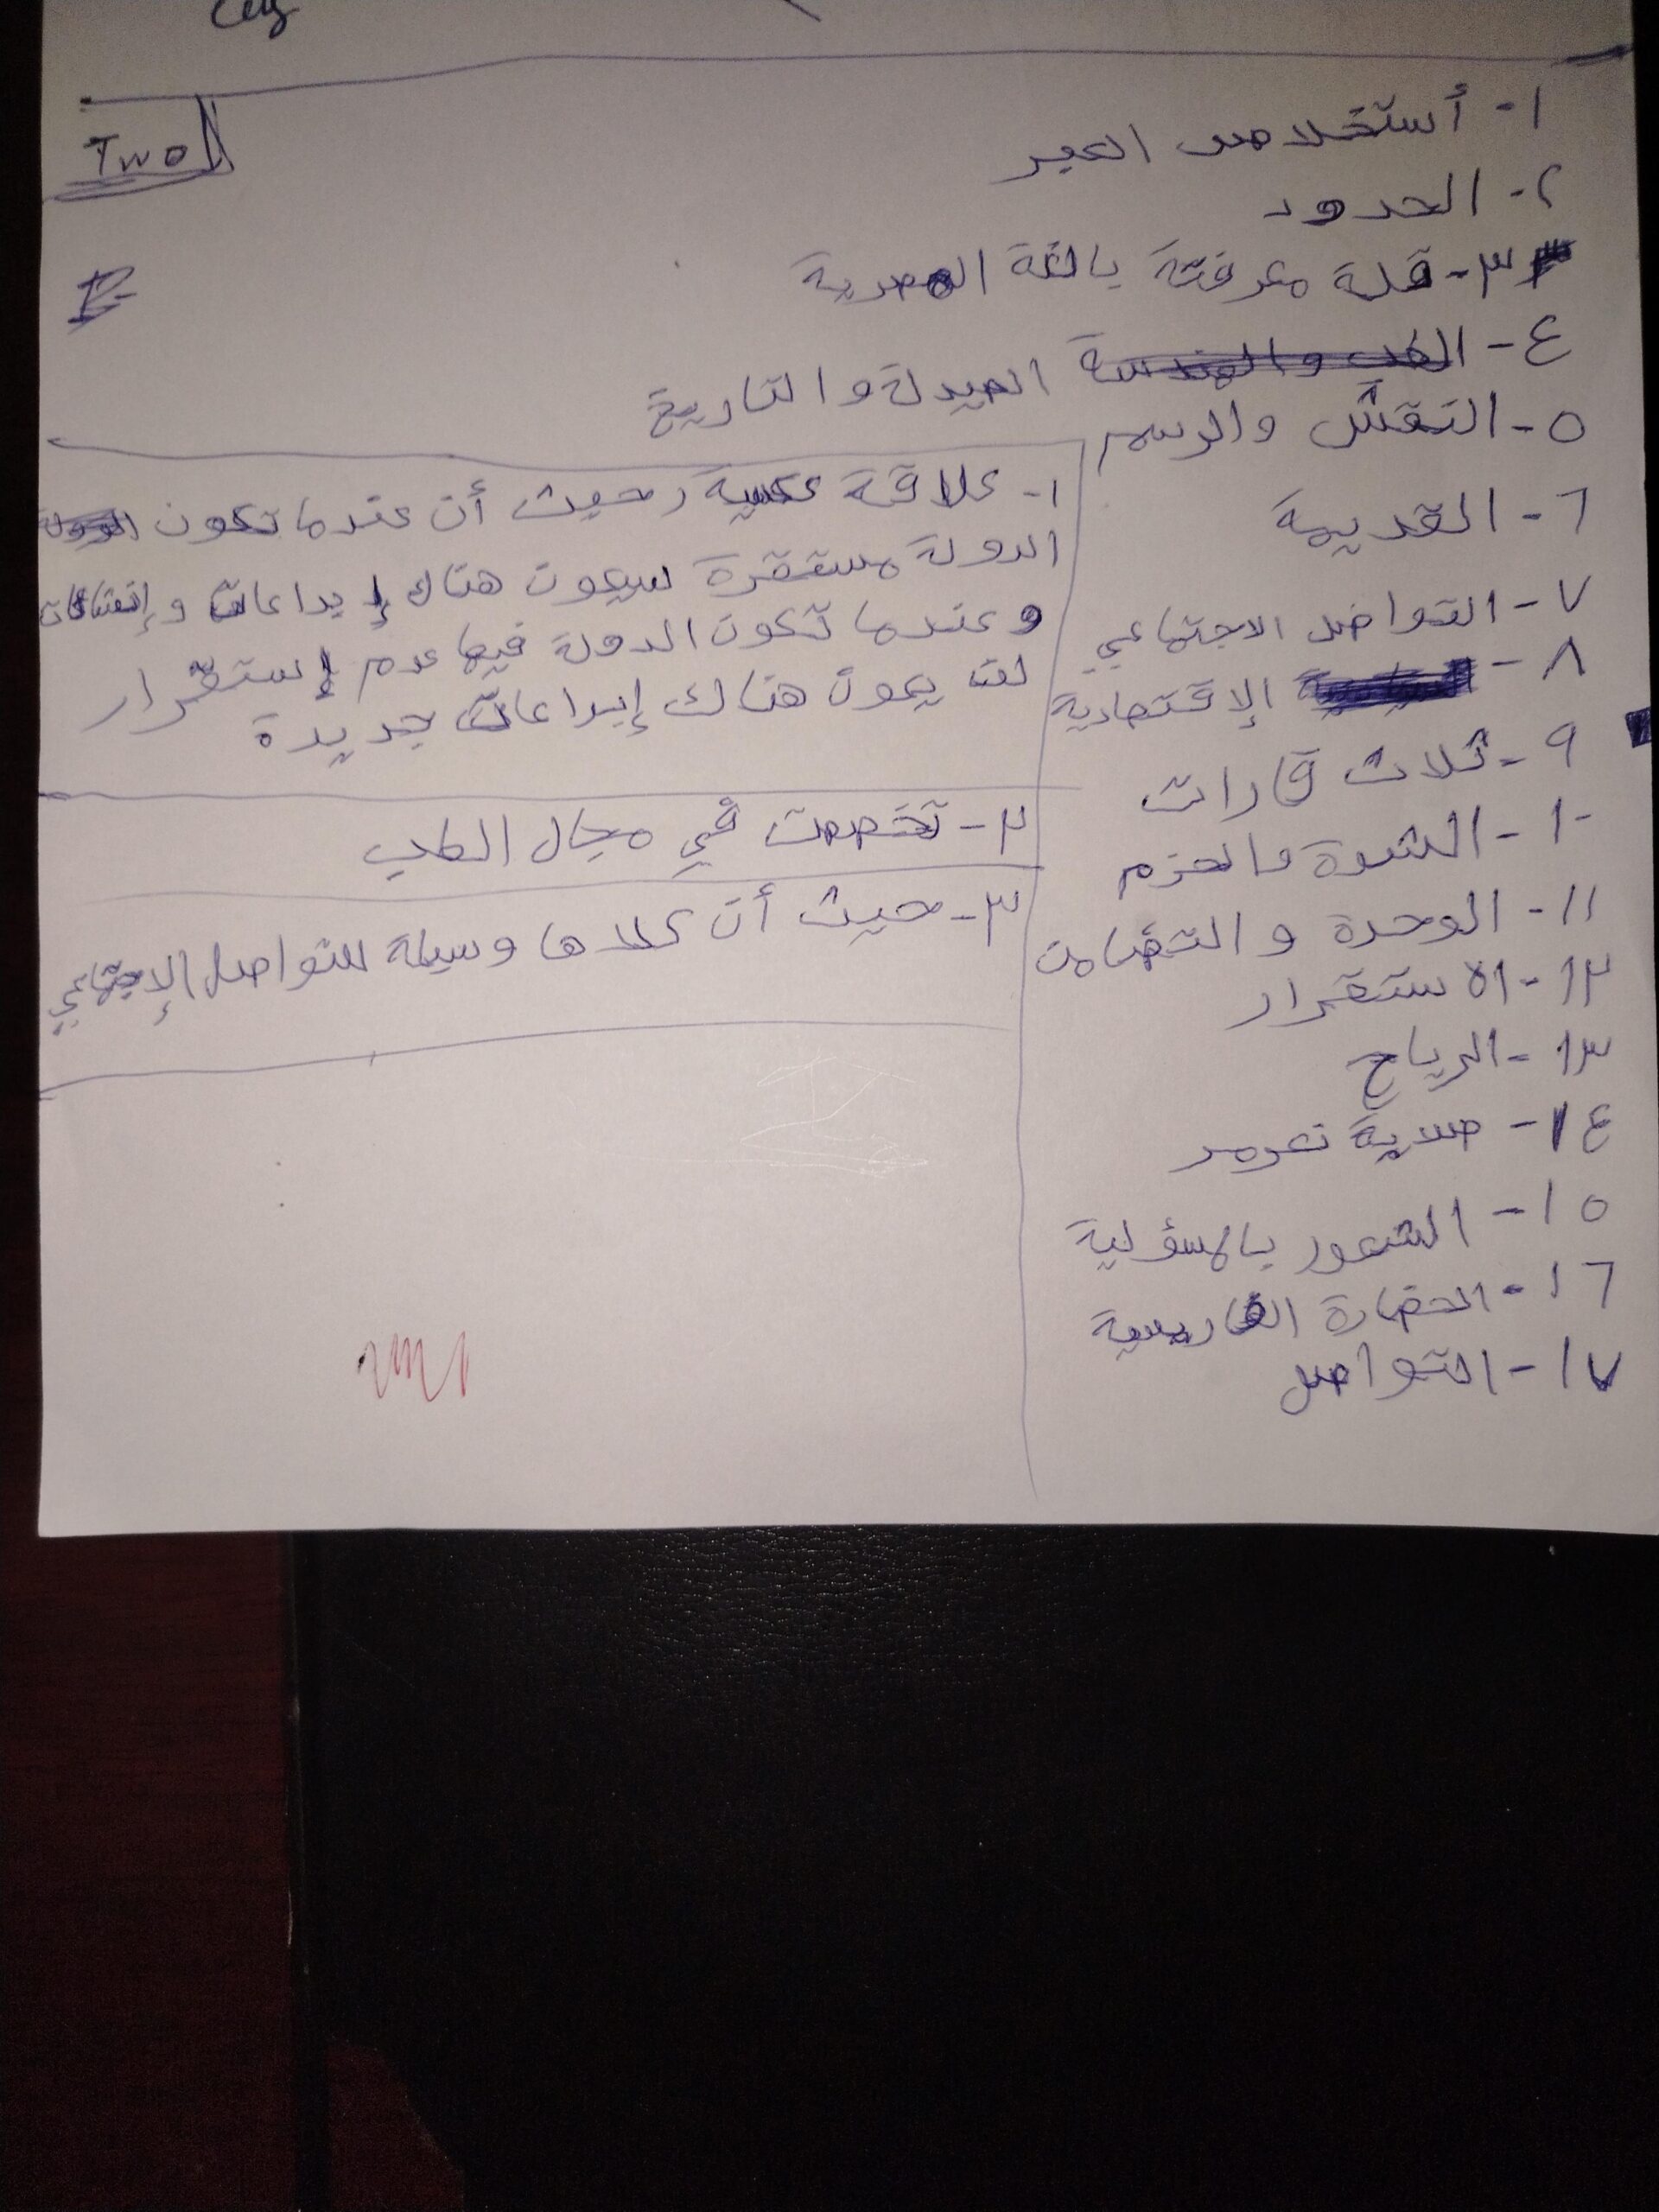 Two
١- أستخلاص العبر
٢- الحدود
٣- قلة معرفتة بالغة المصرية
٤- الطب والهندسة الصيدلة والتاريخ
٥- النقش والرسم
٦- القديمة
٧- التواصل الاجتماعي
٨- الإقتصادية
٩- ثلاث قارات
١٠- الشدة والحزم
١١- الوحدة والتضامن
١٢- الاستقرار
١٣- الرياح
١٤- صلاية نعرمر
١٥- الشعور بالمسؤلية
١٦- الحضارة الفارسية
١٧- التواصل
١- علاقة عكسية حيث أن عندما تكون
الدولة مستقرة سيكون هناك إبداعات و
وعندما تكون الدولة فيها عدم إستقرار
لن يكون هناك إبداعات جديدة
٢- تخصصت في مجال الطب
٣- حيث أن كلاها وسيلة للتواصل الإجتماعي